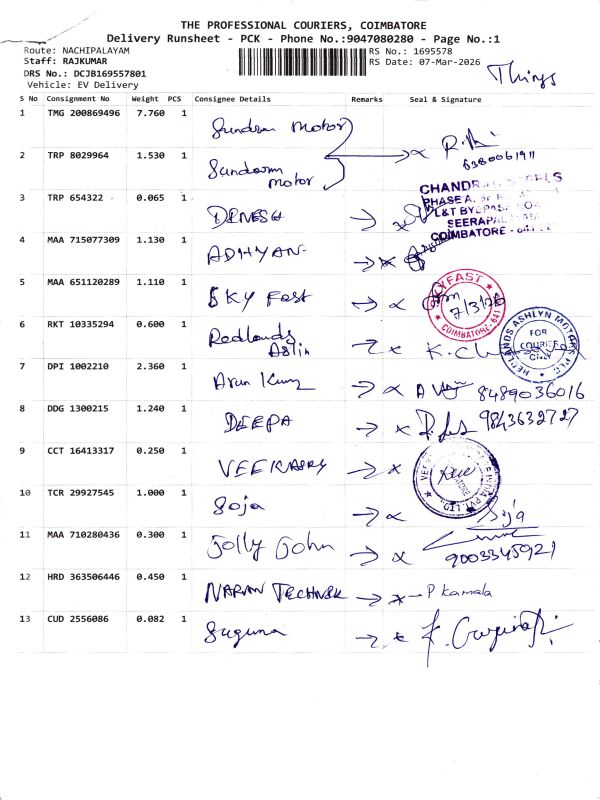 THE PROFESSIONAL COURIERS, COIMBATORE
Delivery Runsheet - PCK - Phone No.:9047080280 - Page No.:1
Route: NACHIPALAYAM
RS No.: 1695578
Staff: RAJKUMAR
RS Date: 07-Mar-2026
DRS No.: DCJB169557801
Vehicle: EV Delivery
Things
S No Consignment No Weight PCS Consignee Details Remarks Seal & Signature
1 TMG 200869496 7.760 1 Sundram Motor
2 TRP 8029964 1.530 1 Sundaram motor
3 TRP 654322 0.065 1 DENESH
CHANDR
PHASE A,
L&T BYEPASS
SEERAPA
COIMBATORE - 641
4 MAA 715077309 1.130 1 ADHYAN
5 MAA 651120289 1.110 1 SKY Fast
7/3/26
COIMBATORE-641
6 RKT 10335294 0.600 1 Redlands Aslin
REDLANDS ASHLYN MOTORS PLC
FOR
COURIER
ONLY
7 DPI 1002210 2.360 1 Arun Kumar 8489036016
8 DDG 1300215 1.240 1 DEEPA 9843632727
9 CCT 16413317 0.250 1
10 TCR 29927545 1.000 1 Soja
11 MAA 710280436 0.300 1 Jolly John 9003345921
12 HRD 363506446 0.450 1 P Kamala
13 CUD 2556086 0.082 1 Suguna